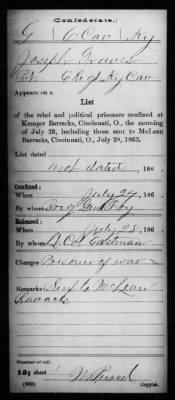 (Confederate.)
G 6 Cav Ky
Joseph Graves
Co. G, 6 Ky Cav
Appears on a
List
of the rebel and political prisoners confined at
Kemper Barracks, Cincinnati, O., the morning
of July 29, including those sent to McLean
Barracks, Cincinnati, O., July 28, 1863.
List dated
not dated , 186 .
Confined:
When July 24, 186 .
By whom
Released:
When July 28, 186 .
By whom Lt Col Eastman
Charges Prisoner of war
Remarks: Sent to McLean
Barracks
Number of roll:
sheet
Copyist.